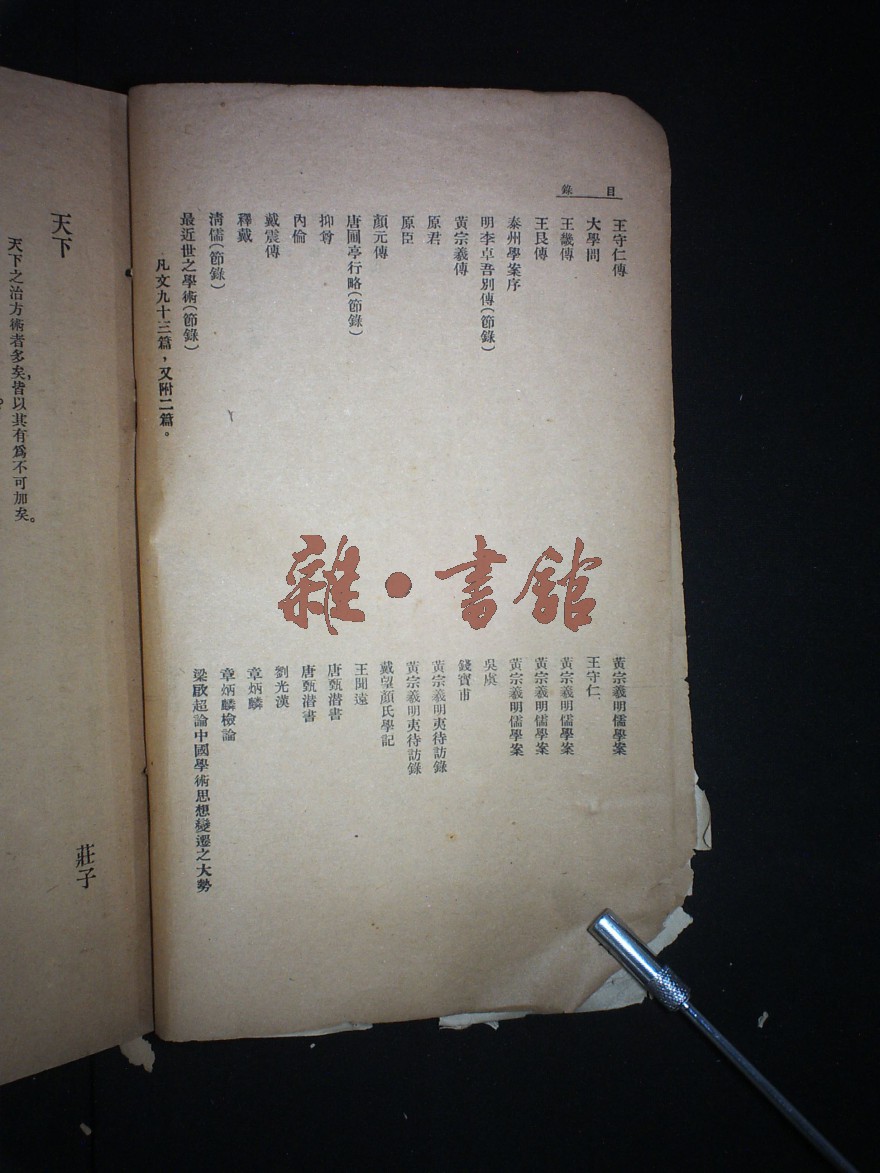 目錄
王守仁傳 黃宗羲明儒學案
大學問 王守仁
王畿傳 黃宗羲明儒學案
王艮傳 黃宗羲明儒學案
泰州學案序 黃宗羲明儒學案
明李卓吾別傳(節錄) 吳虞
黃宗羲傳 錢寶甫
原君 黃宗羲明夷待訪錄
原臣 黃宗羲明夷待訪錄
顏元傳 戴望顏氏學記
唐圃亭行略(節錄) 王聞遠
抑尊 唐甄潛書
內倫 唐甄潛書
戴震傳 劉光漢
釋戴 章炳麟
清儒(節錄) 章炳麟檢論
最近世之學術(節錄) 梁啟超論中國學術思想變遷之大勢
凡文九十三篇,又附二篇。
天下 莊子
天下之治方術者多矣,皆以其有爲不可加矣。
雜·書館